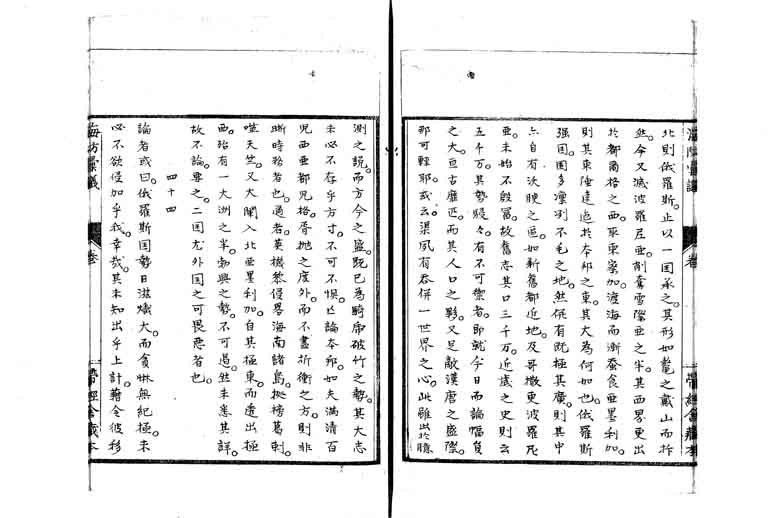 北則俄羅斯。止以一国承之。其形如鼇之戴山而抃
然今又滅波羅尼亜。削奪雪際亜之半。其西界更出
於都爾格之西。東東察加。渡海而漸蚕食亜墨利加。
則其東陲逹迤於本邦之東。其大為何如也。俄羅斯
强国。固多凜冽不毛之地。然俄有既極其廣。則其中
亦自有沃腴之區。如新舊都近地。及哥撒更波羅尼
亜。未始不殷冨。故舊志其口三千万。近歳之史則云
五千万。其勢駸々。有不可禦者。即就今日而論。幅負
之大。亘古靡匹。而其人口之夥。又足敵漢唐之盛際。
那可輕耶。或云。渠夙有吞併一世界之心。此雖出於臆
測之説。而方今之盛。既已為騎虎破竹之勢。其大志
未必不存乎方寸。不可不惧。亡論本邦。如夫滿清百
児西亜都児格。胥抛之度外。而不畫折衝之方。則非
晰時務者也。過者。英機黎侵畧海南諸島。拠榜葛剌。
噬天竺。又大闢入北亜墨利加。自其極東。而遶出極
西。殆有一大洲之半。勃興之勢。不可遏。然未悉其詳。
故不論。要之。二国尤外国之可畏悪者也。
四十四
論者或曰。俄羅斯国勢日滋熾大。而貪惏無紀極。未
必不欲侵加乎我。幸哉。其未知出乎上計。藉令彼移
海防臆議
卷
帶經舎蔵本